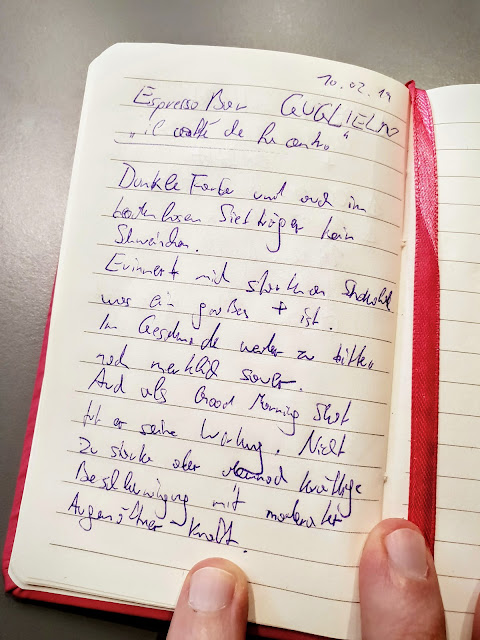 10.02.19
Espresso Bar GUGLIELMO
„il caffé de l'incontro“
Dunkle Farbe und auch im
bodenlosen Siebträger kein
Schwänchen.
Erinnert mich stark an Schokolade
was ein großes + ist.
Im Geschmack weder zu bitter
noch merklich sauer.
Auch als Good Morning Shot
tut er seine Wirkung. Nicht
zu stark aber dennoch kräftige
Beschleunigung mit moderater
Augenöffner-Kraft.